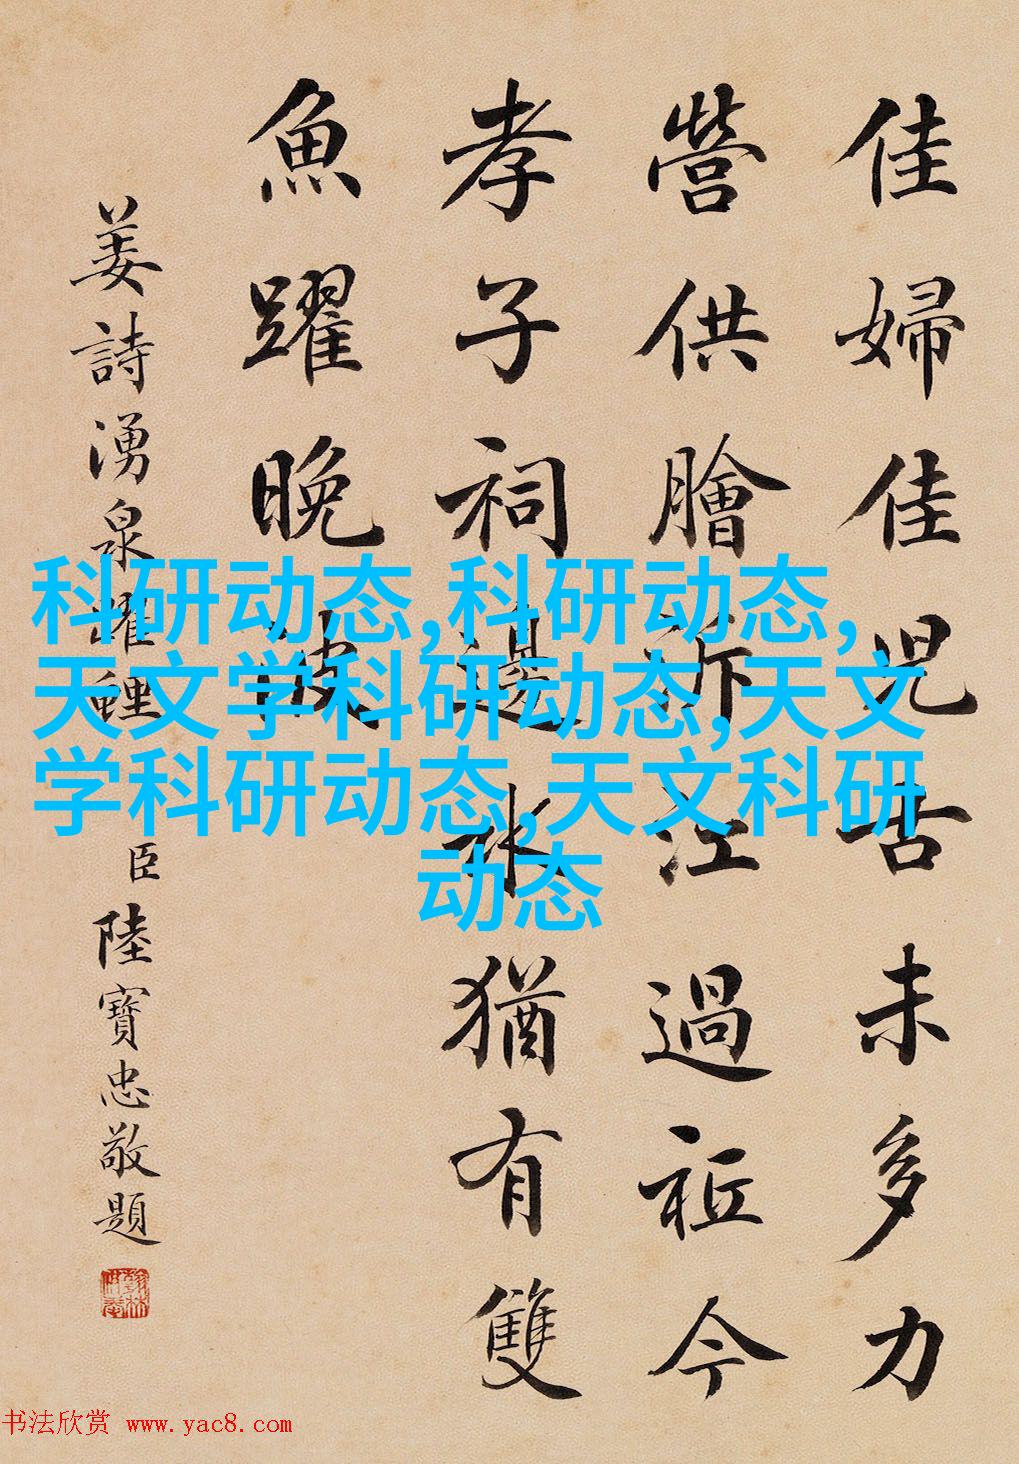 佳婦佳兒古未多力
營供膾泝江過祉今
孝子祠邊水猶有雙
魚躍晚波
姜詩湧泉躍鯉
臣陸寶忠敬題
科研动态,科研动态,
天文学科研动态,天文
学科研动态,天文科研
动态
书法欣赏 www.yac8.com